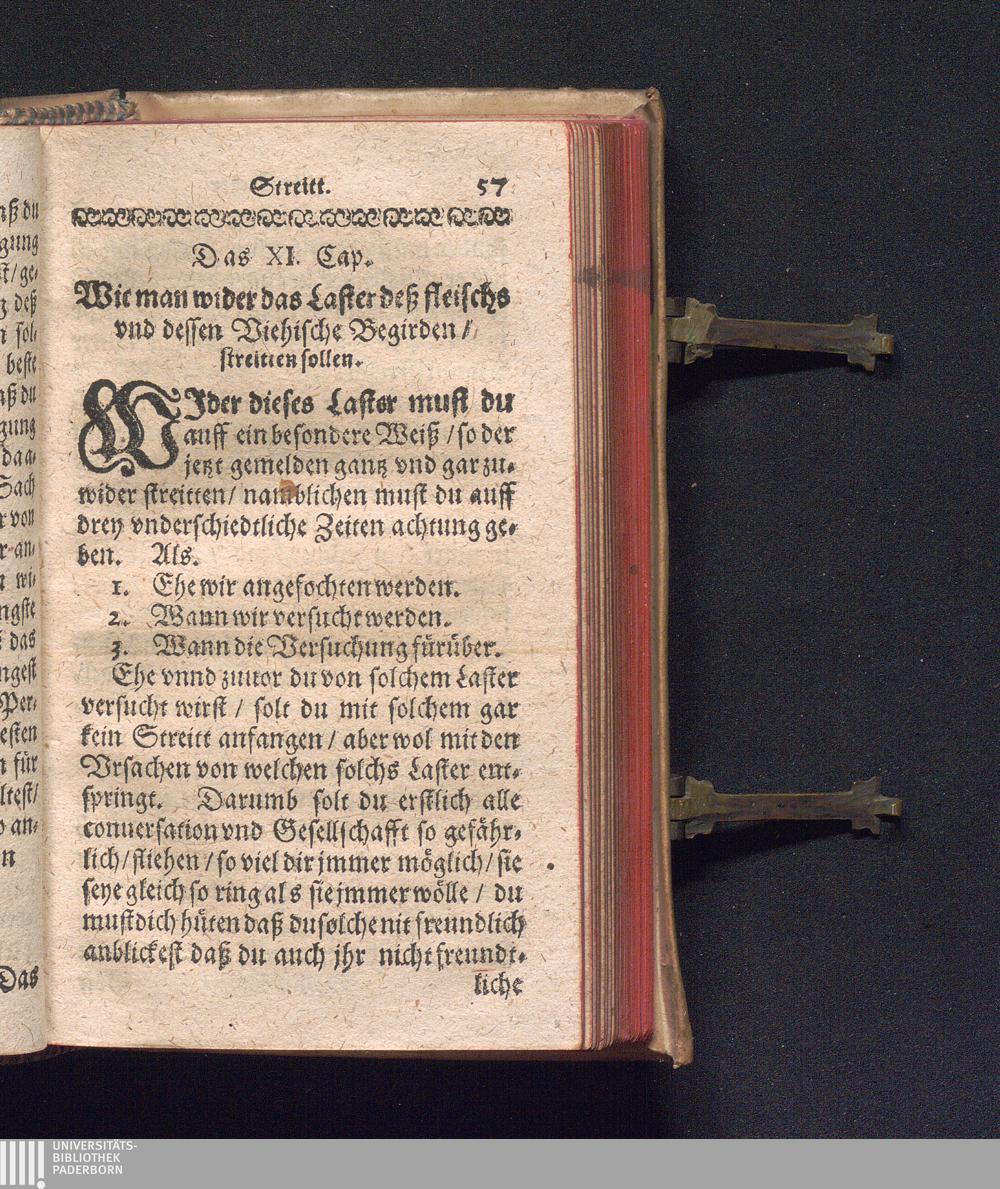 Streitt. 57
Das XI. Cap.
Wie man wider das Laster deß fleischs
vnd dessen Viehische Begirden /
streitten sollen.
WJder dieses Laster must du
auff ein besondere Weiß / so der
jetzt gemelden gantz vnd gar zu-
wider streitten / namblichen must du auff
drey vnderschiedtliche Zeiten achtung ge-
ben. Als.
1. Ehe wir angefochten werden.
2. Wann wir versucht werden.
3. Wann die Versuchung fürüber.
Ehe vnnd zuuor du von solchem Laster
versucht wirst / solt du mit solchem gar
kein Streitt anfangen / aber wol mit den
Vrsachen von welchen solchs Laster ent-
springt. Darumb solt du erstlich alle
conuersation vnd Gesellschafft so gefähr-
lich / fliehen / so viel dir jmmer möglich / sie
seye gleich so ring als sie jmmer wölle / du
must dich hüten daß du solche nit freundlich
anblickest daß du auch jhr nicht freundt-
liche
ß du
gung
st / ge-
deß
sol-
beste
ß du
gung
Sach
von
an-
wi-
ngste
das
ngest
Per-
esten
für
ltest /
an-
n
Das
UNIVERSITÄTS-
BIBLIOTHEK
PADERBORN